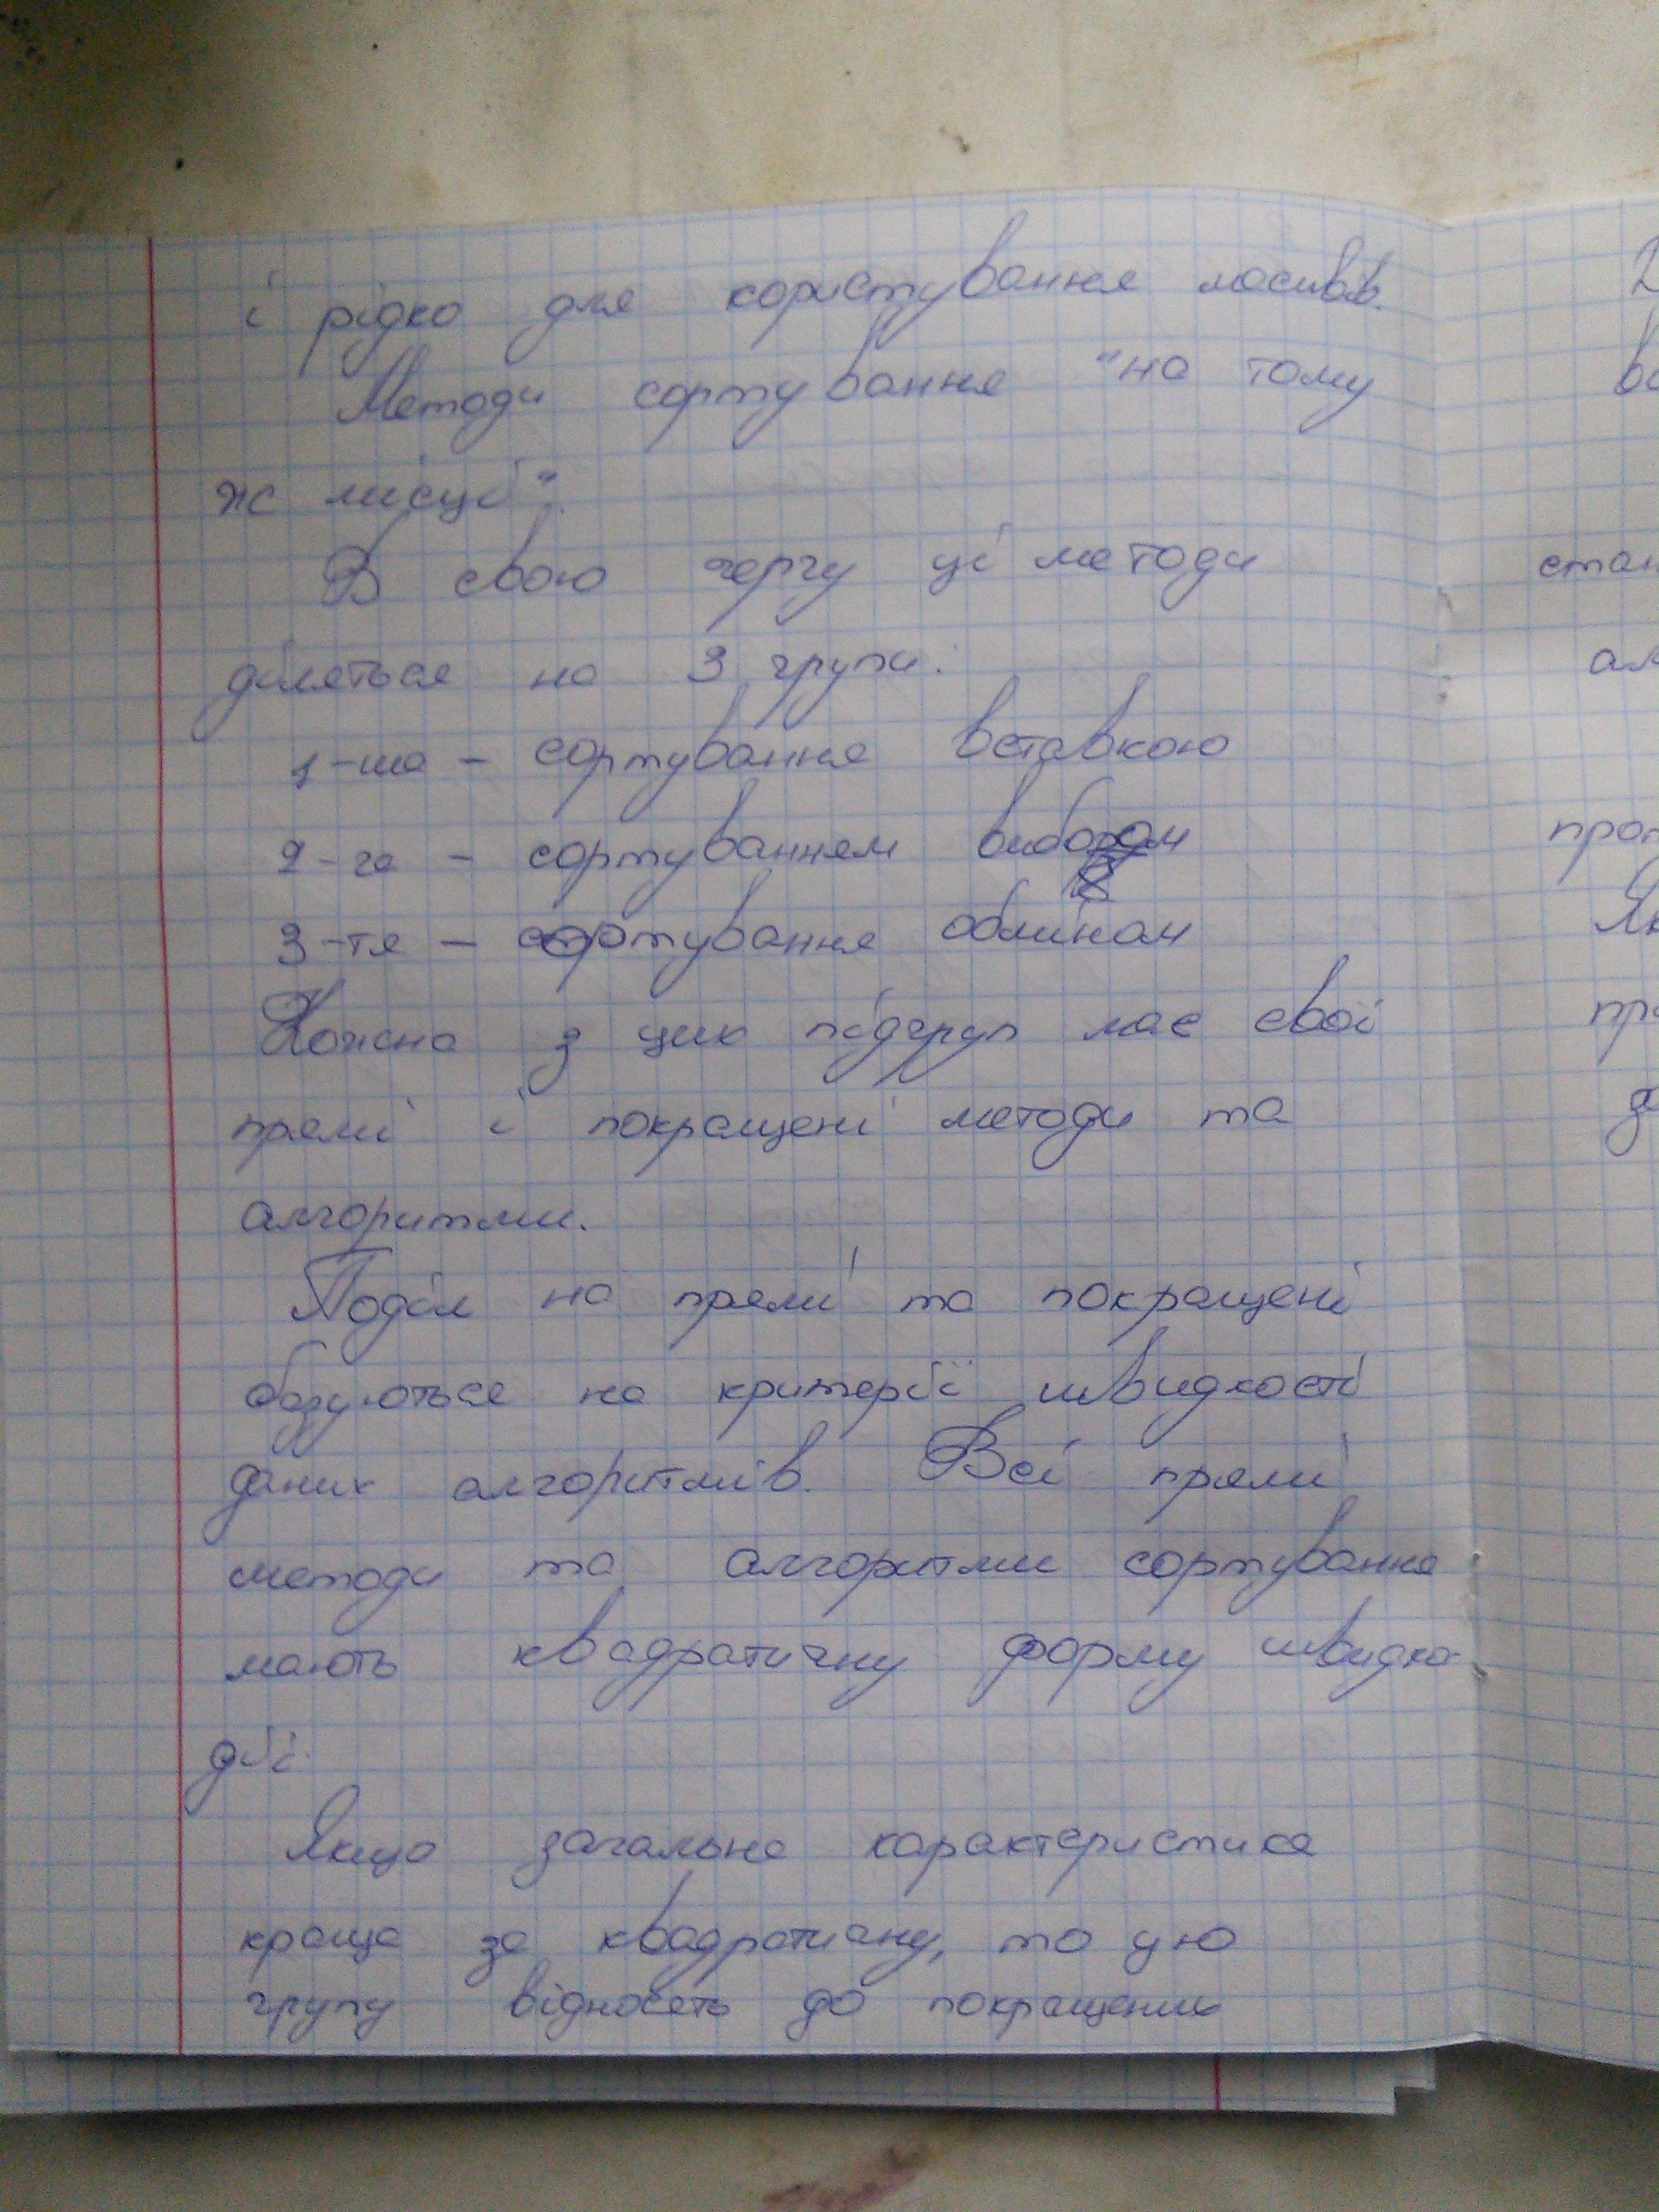 і рідко для користування масивів.
Методи сортування "на тому
ж місці".
В свою чергу ці методи
діляться на 3 групи:
1-ша - сортування вставкою
2-га - сортуванням вибором
3-тя - сортування обміном
Кожна з цих підгруп має свої
прямі і покращені методи та
алгоритми.
Поділ на прямі та покращені
базуються на критерії швидкості
даних алгоритмів. Всі прямі
методи та алгоритми сортування
мають квадратичну форму швидко-
дії.
Якщо загальна характеристика
краща за квадратичну, то цю
групу відносять до покращених